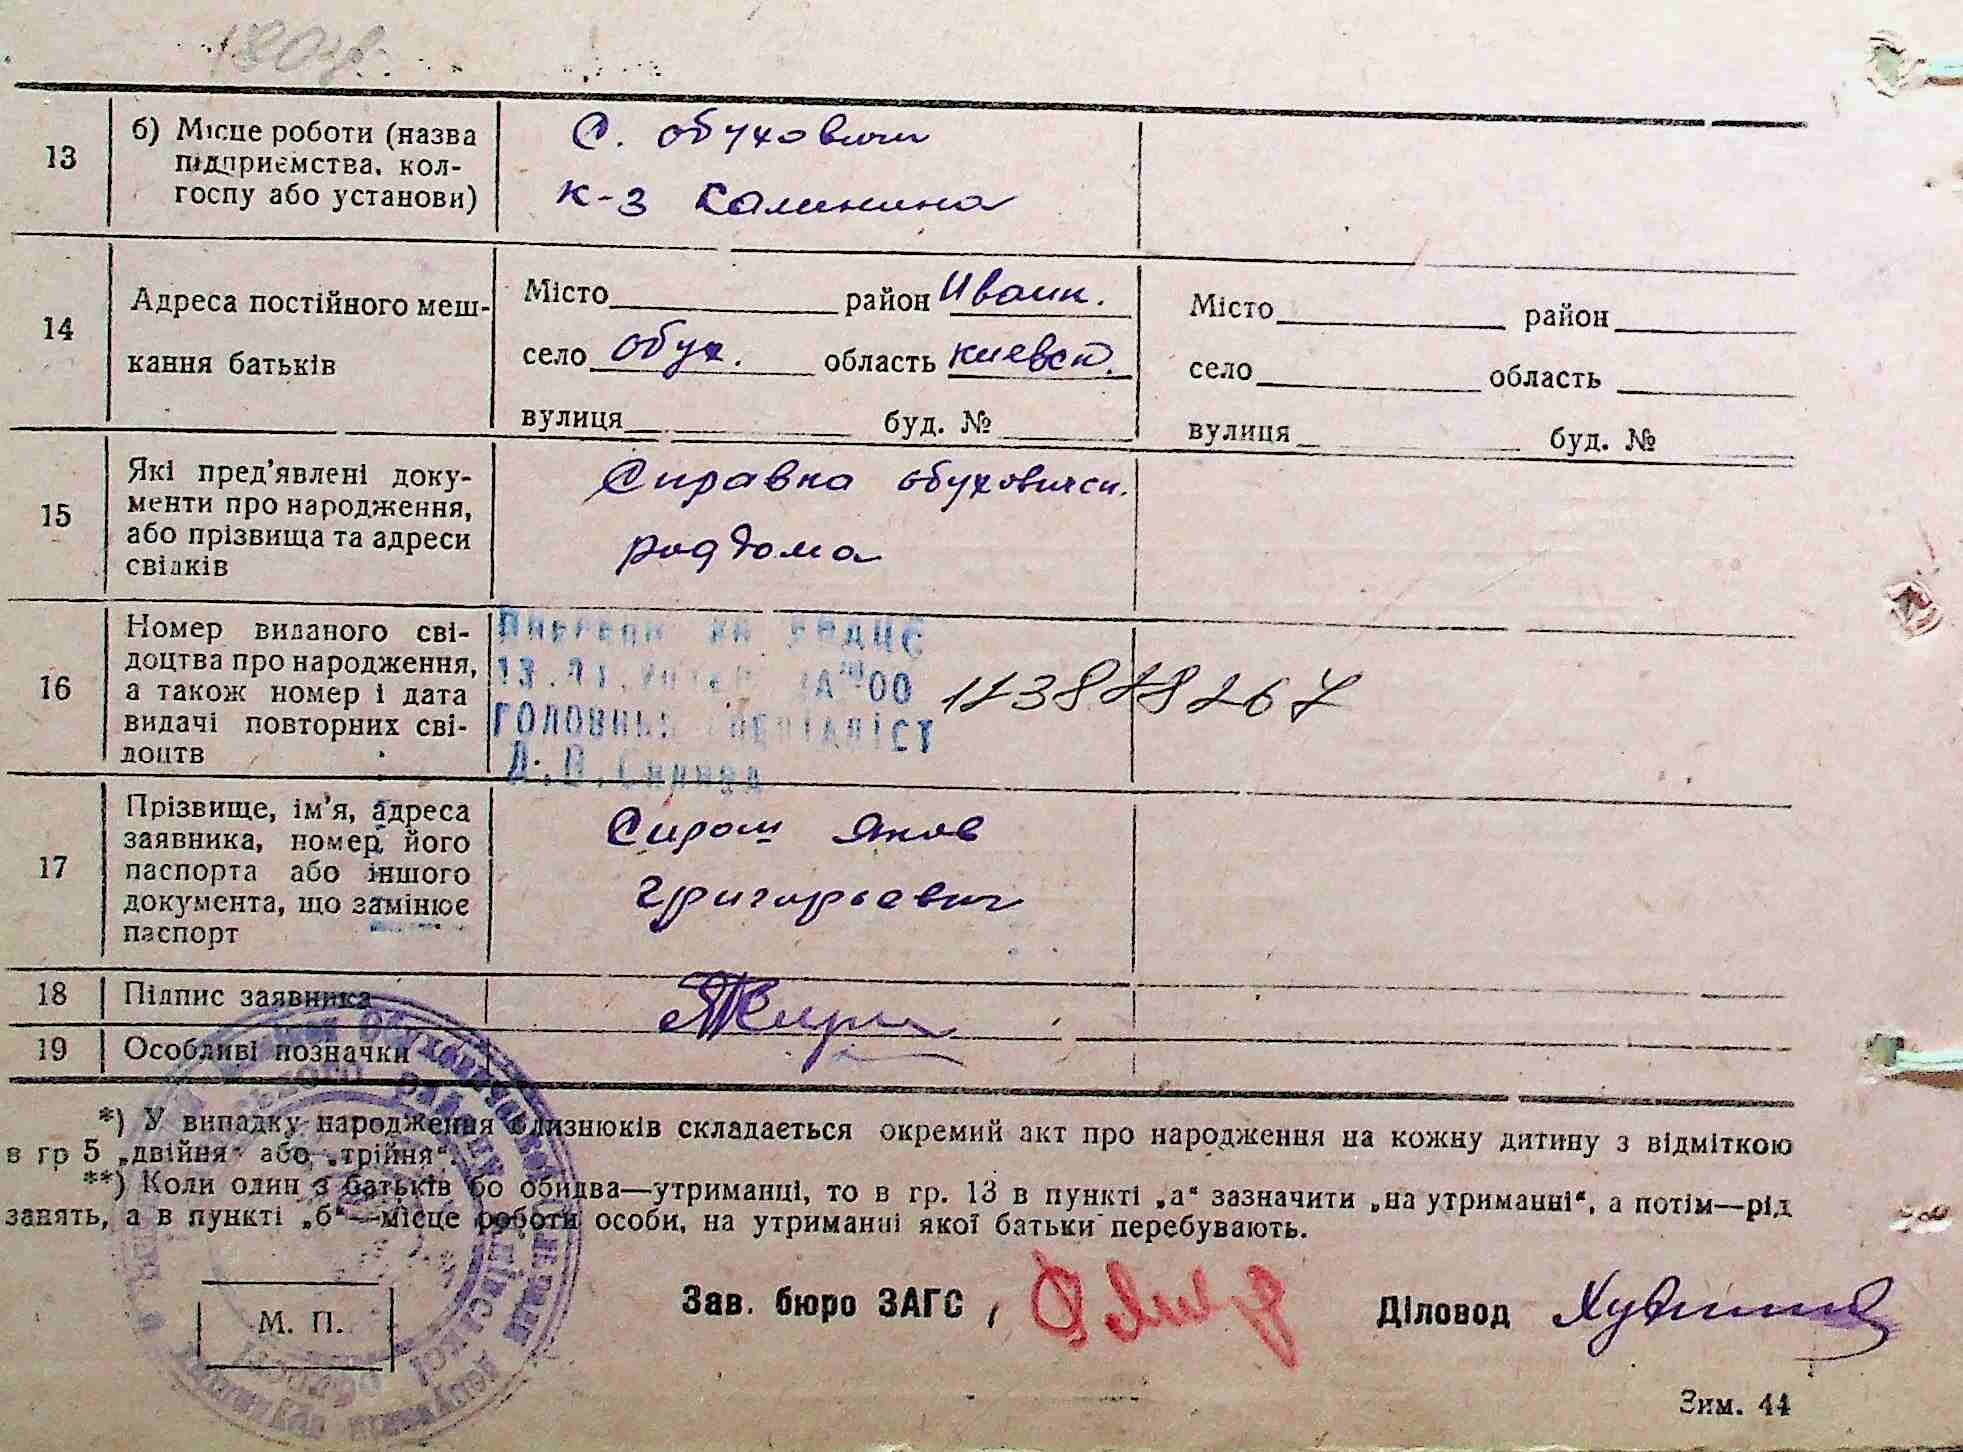 13
б) Місце роботи (назва
підприємства, кол-
госпу або установи)
С. Обуховичи
к-з Калинина
14
Адреса постійного меш-
кання батьків
Місто район Иванк.
село Обух. область Киевск.
вулиця буд. №
Місто район
село область
вулиця буд. №
15
Які пред'явлені доку-
менти про народження,
або прізвища та адреси
свідків
Справка Обуховичск.
роддома
16
Номер виданого сві-
доцтва про народження,
а також номер і дата
видачі повторних сві-
доцтв
ГОЛОВНИЙ СПЕЦІАЛІСТ
17
Прізвище, ім'я, адреса
заявника, номер його
паспорта або іншого
документа, що замінює
паспорт
Сирош Яков
Григорьевич
18
Підпис заявника
19
Особливі позначки
*) У випадку народження близнюків складається окремий акт про народження на кожну дитину з відміткою
в гр 5 „двійня“ або „трійня“.
**) Коли один з батьків бо обидва—утриманці, то в гр. 13 в пункті „а“ зазначити „на утриманні“, а потім—рід
занять, а в пункті „б“—місце роботи особи, на утриманні якої батьки перебувають.
М. П.
Зав. бюро ЗАГС
Діловод
Зим. 44